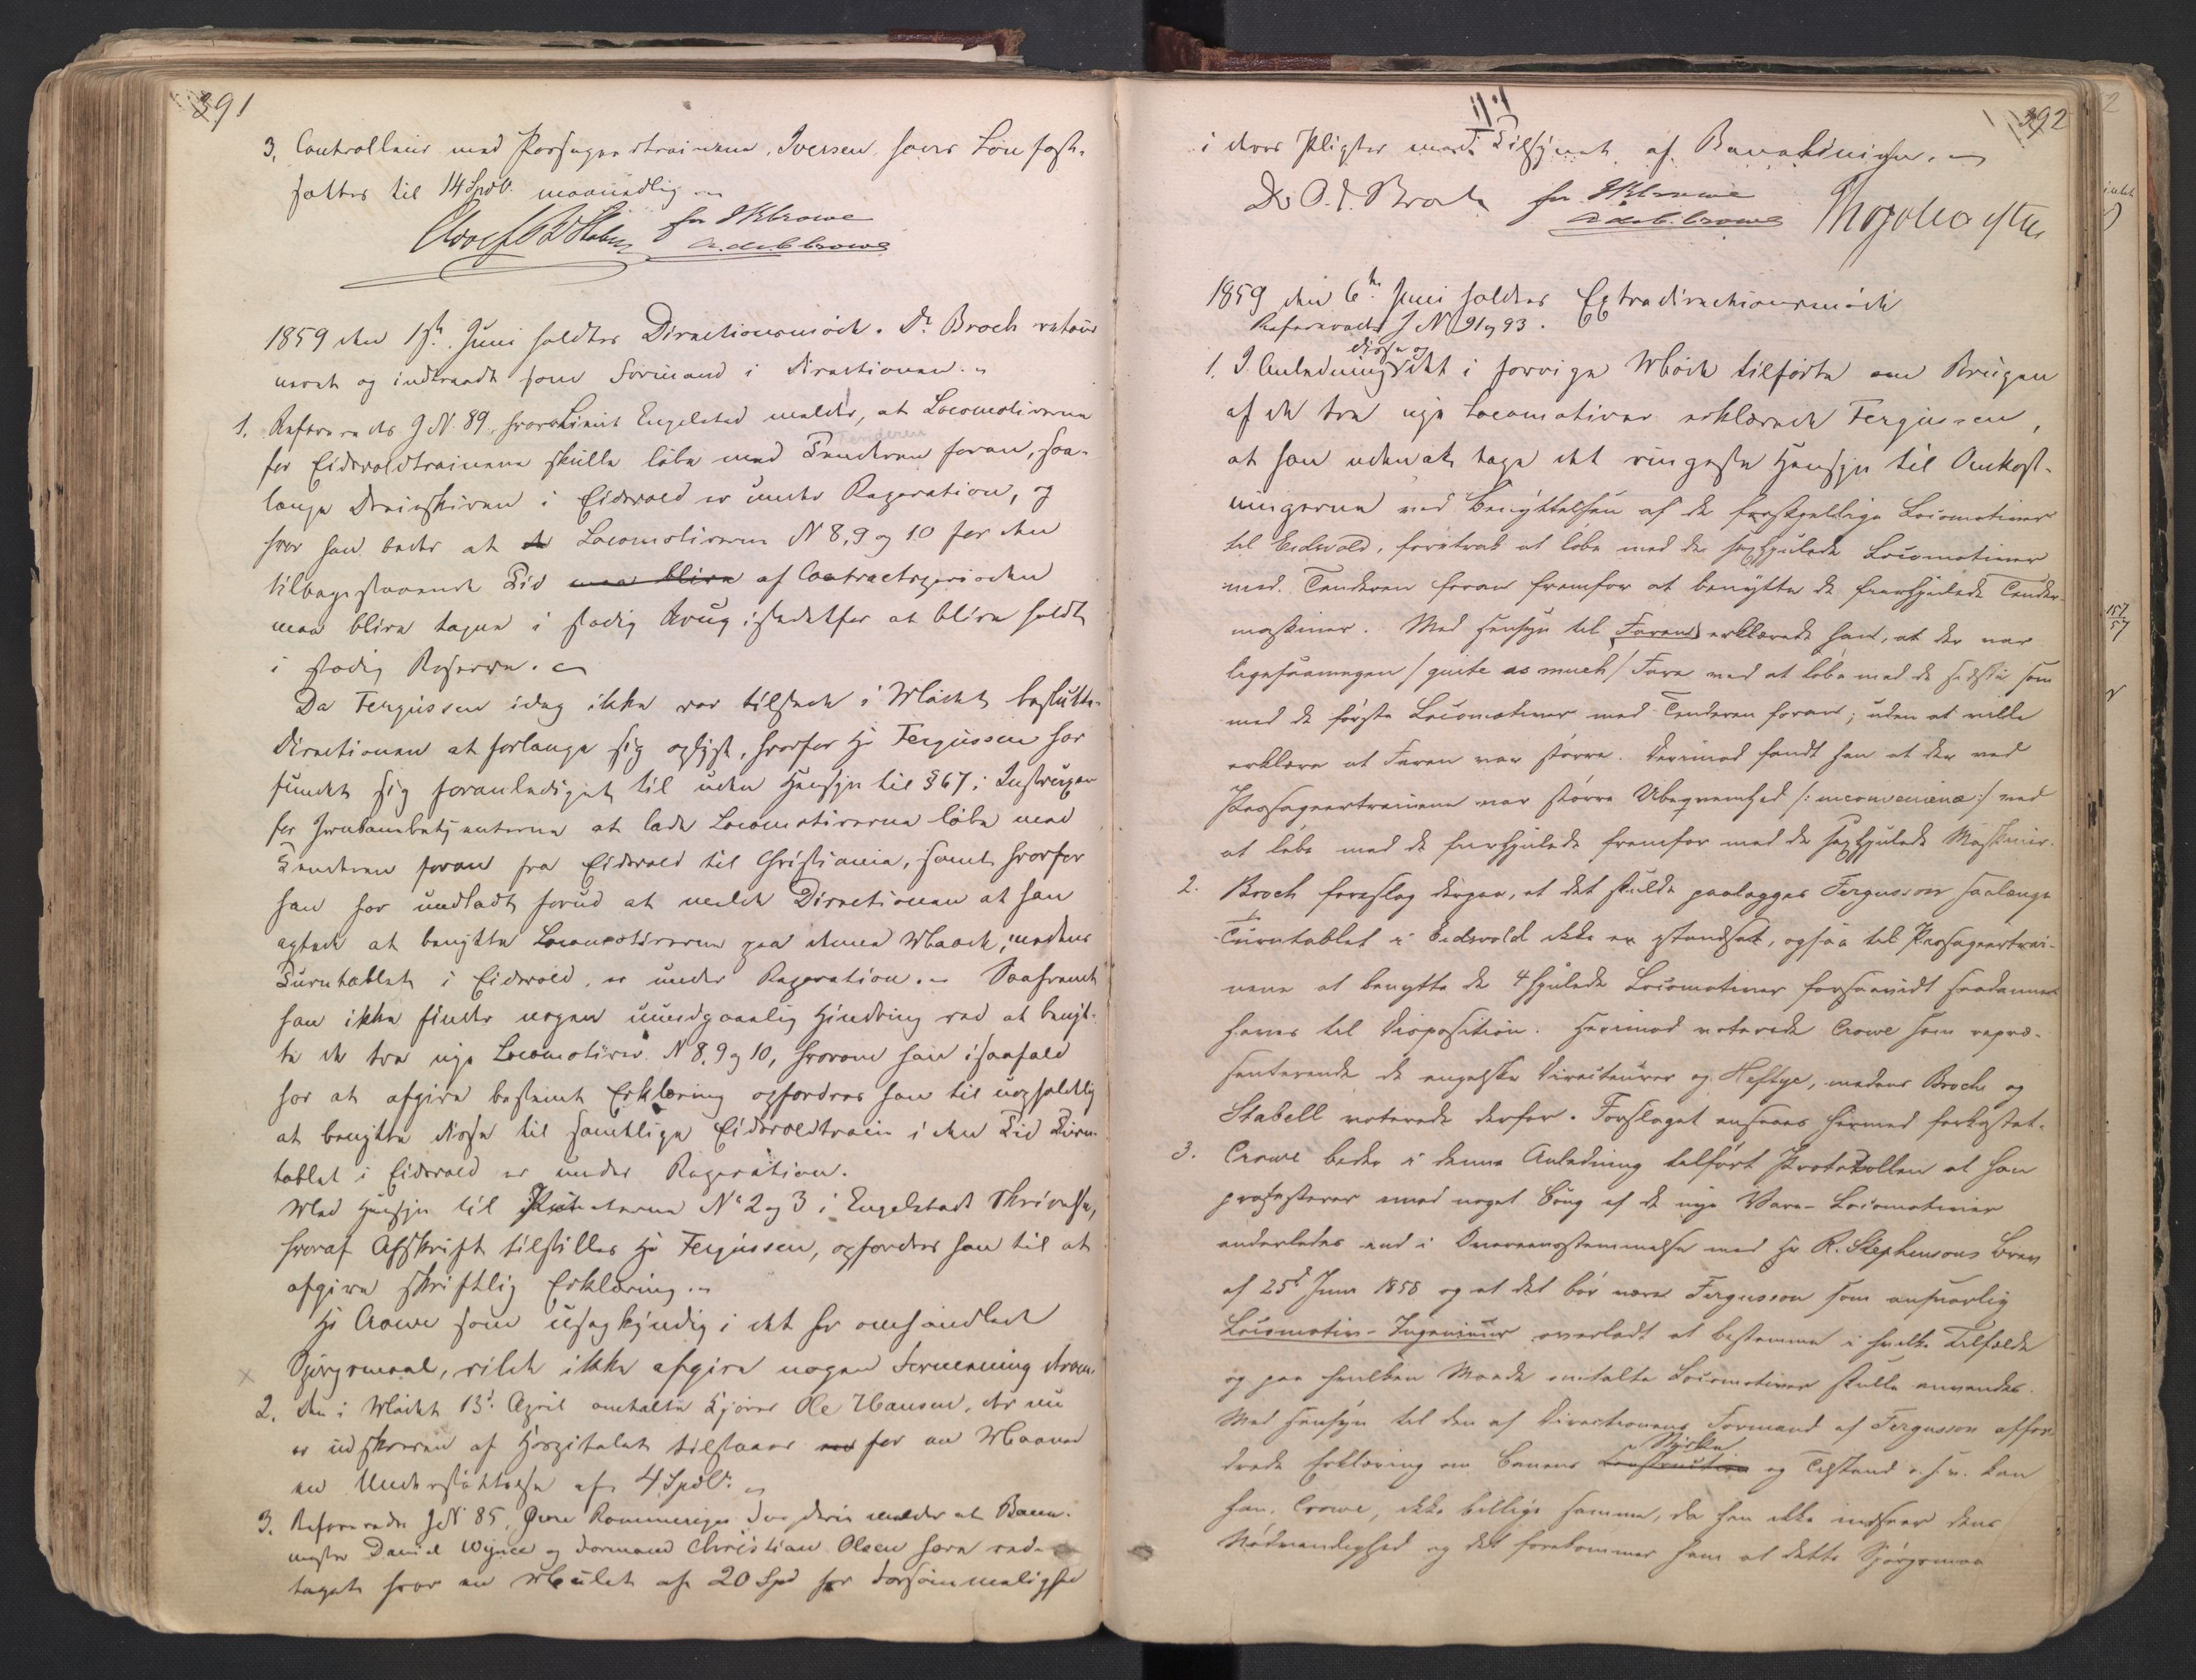 391
3. Controlleur med Passagertrainene, Iversen, faaer Løn fast-
sættes til 14 Spdlr. maanedlig
for J R Crowe
A. de C. Crowe
1859 den 1ste Juni holdtes Directionsmöde. Dr. Broch retour-
neret og indtraadt som Formand i Directionen.
1. Refereredes J N. 89, hvori Lieut Engelstad melder, at Locomotiverne
Tenderen
for Eidsvoldtrainene skulle løbe med Tenderen foran, saa-
længe Dreieskiven i Eidsvold er under Reparation, og
hvor han beder at Locomotiverne N 8, 9 og 10 for den
tilbagestaaende Tid maa blive af Contractsperioden
maa blive tagne i stadig Brug istedetfor at blive holdt
i stadig Reserve.
Da Fergussen idag ikke var tilstede i Mödet besluttede
Directionen at forlange sig oplyst, hvorfor Hr Fergussen har
fundet sig foranlediget til uden Hensyn til § 67 i Instruxen
for Jernbanebetjenterne at lade Locomotiverne løbe med
Tenderen foran fra Eidsvold til Christiania, samt hvorfor
han har undladt forud at melde Directionen at han
agtede at benytte Locomotiverne paa denne Maade, medens
Turntablet i Eidsvold er under Reparation. Saafremt
han ikke finder nogen uundgaaelig Hindring ved at benyt-
te de tre nye Locomotiver N 8, 9 og 10, hvorom han i saafald
har at afgive bestemt Erklæring opfordres han til uopholdelig
at benytte disse til samtlige Eidsvoldtrain i den Tid Turn-
tablet i Eidsvold er under Reparation.
Med Hensyn til Posterne No 2 og 3 i Engelstads Skrivelse,
hvoraf Afskrift tilstilles Hr Fergussen, opfordres han til at
afgive skriftlig Erklæring.
Hr Crowe som usagkyndig i det her omhandlede
Spørgsmaal, vilde ikke afgive nogen Formening derom.
2. Den i Mödet 13d April omtalte Kjører Ole Hansen, der nu
er udskreven af Hospitalet tilstaaes for en Maaned
en Understøttelse af 4 Spdlr.
3. Refereredes J N 85, Øvre Rommeriges melder at Bane-
mester Daniel Wynce og Formand Christian Olsen have ved-
taget hver en Mulct af 20 Spd for Forsømmelighed
392
i deres Pligter med Tilsynet af Banelinien.
Dr O. J. Broch for J R Crowe
A de C. Crowe Tho Joh Heftye
1859 den 6te Juni holdtes Extradirectionsmöde
Refereredes J N 91 og 93.
disse og
1. I Anledning det i forrige Möde tilførte om Brugen
af de tre nye Locomotiver erklærede Fergussen,
at han uden at tage det ringeste Hensyn til Omkost-
ningerne ved Benyttelsen af de forskjellige Locomotiver
til Eidsvold, foretrak at løbe med de sexhjulede Locomotiver
med Tenderen foran fremfor at benytte de fiirhjulede Tender-
maskiner. Med Hensyn til Faren erklærede han, at der var
ligesaamegen / quite as much / Fare ved at løbe med de sidste som
med de første Locomotiver med Tenderen foran; uden at ville
erklære at Faren var større. Derimod fandt han at der ved
Passagertrainene var større Ubeqvemhed /: inconvenience :/ ved
at løbe med de fiirhjulede fremfor med de sexhjulede Maskiner.
2. Broch foreslog derpaa, at det skulde paalægges Fergusson saalænge
Turntablet i Eidsvold ikke er istandsat, ogsaa til Passagertrai-
nene at benytte de 4 hjulede Locomotiver forsaavidt saadanne
haves til Disposition. Herimod voterede Crowe som repræ-
senterende de engelske Directeurer og Heftye, medens Broch og
Stabell voterede derfor. Forslaget ansees hermed forkastet.
3. Crowe beder i denne Anledning tilført Protokollen at han
protesterer imod noget Brug af de nye Vare-Locomotiver
anderledes end i Overensstemmelse med Hr R. Stephensons Brev
af 25d Juni 1858 og at det bör være Fergusson som ansvarlig
Locomotiv-Ingenieur overladt at bestemme i hvilke Tilfælde
og paa hvilken Maade omtalte Locomotiver skulle anvendes.
Med Hensyn til den af Directionens Formand af Fergusson affor-
Styrke
drede Erklæring om Banens Construction og Tilstand o.s.v. kan
han, Crowe, ikke billige samme, da han ikke indseer dens
Nödvendighed og det forekommer ham at dette Spörgsmaa